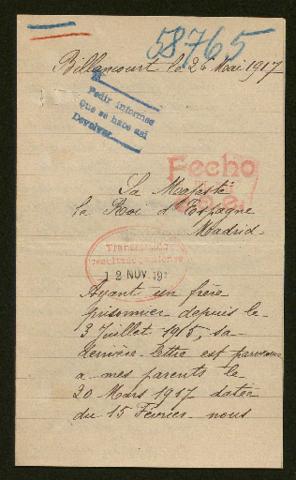 58765
Billancourt le 26 Mai 1917
Pedir informes
que se hace asi
Devolver
Fecho
Sa Majesté
le Roi d'Espagne
Madrid
12 NOV. 191
Ayant un frère
prisonnier depuis le
3 Juillet 1915, sa
dernière lettre est parvenue
a mes parents le
20 Mars 1917 datée
du 15 Février nous